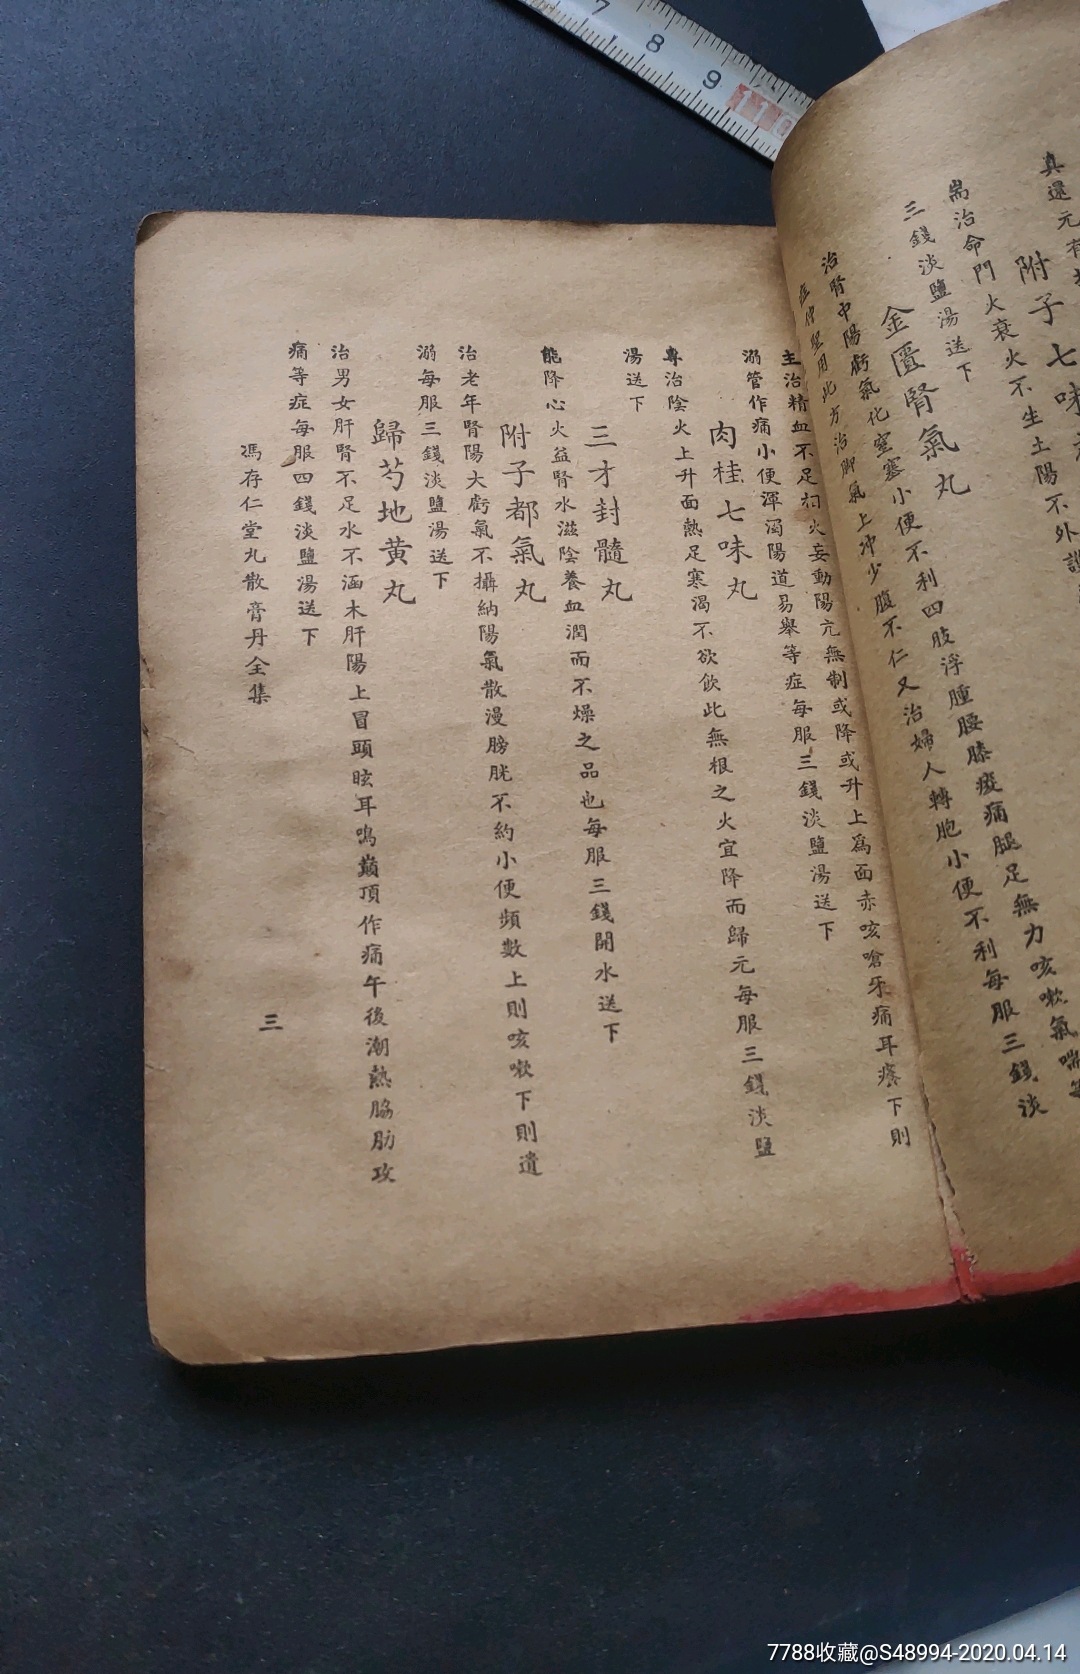 真還元有
附子七味
耑治命門火衰火不生土陽不外
三錢淡鹽湯送下
金匱腎氣丸
治腎中陽虧氣化窒塞小便不利四肢浮腫腰膝痠痛腿足無力咳嗽氣喘等
症仲聖用此方治腳氣上冲少腹不仁又治婦人轉胞小便不利每服三錢淡
主治精血不足相火妄動陽亢無制或降或升上爲面赤咳嗆牙痛耳癢下則
溺管作痛小便渾濁陽道易舉等症每服三錢淡鹽湯送下
肉桂七味丸
專治陰火上升面熱足寒渴不欲飲此無根之火宜降而歸元每服三錢淡鹽
湯送下
三才封髓丸
能降心火益腎水滋陰養血潤而不燥之品也每服三錢開水送下
附子都氣丸
治老年腎陽大虧氣不攝納陽氣散漫膀胱不約小便頻數上則咳嗽下則遺
溺每服三錢淡鹽湯送下
歸芍地黄丸
治男女肝腎不足水不涵木肝陽上冒頭眩耳鳴巔頂作痛午後潮熱脇肋攻
痛等症每服四錢淡鹽湯送下
馮存仁堂丸散膏丹全集
三
7 8 9 110
7788收藏@S48994-2020.04.14